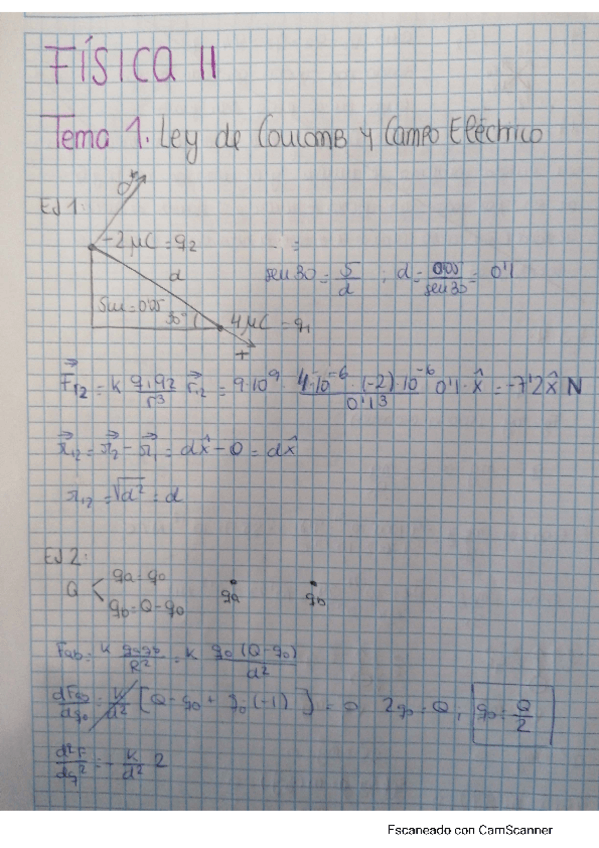 FÍSICA II
Tema 1. Ley de Coulomb y Campo Eléctrico
EJ 1:
-2 μC = q₂
d
sen 30 = 5/d ; d = 0'05/sen 30 = 0'1
5cm = 0'05
30°
4 μC = q₁
+
F⃗₁₂ = k q₁q₂/r³ r⃗₁₂ = 9·10⁹ · 4·10⁻⁶ · (-2)·10⁻⁶/0'1³ 0'1·x̂ = -7'2 x̂ N
r⃗₁₂ = r⃗₂ - r⃗₁ = dx̂ - 0 = dx̂
r₁₂ = √d² = d
EJ 2:
Q < qa = q₀
qb = Q - q₀
qa qb
Fab = k qaqb/R² = k q₀(Q-q₀)/d²
dFab/dq₀ = k/d² [Q - q₀ + q₀(-1)] = 0 2q₀ = Q ; q₀ = Q/2
d²F/dq² = - k/d² 2
Escaneado con CamScanner